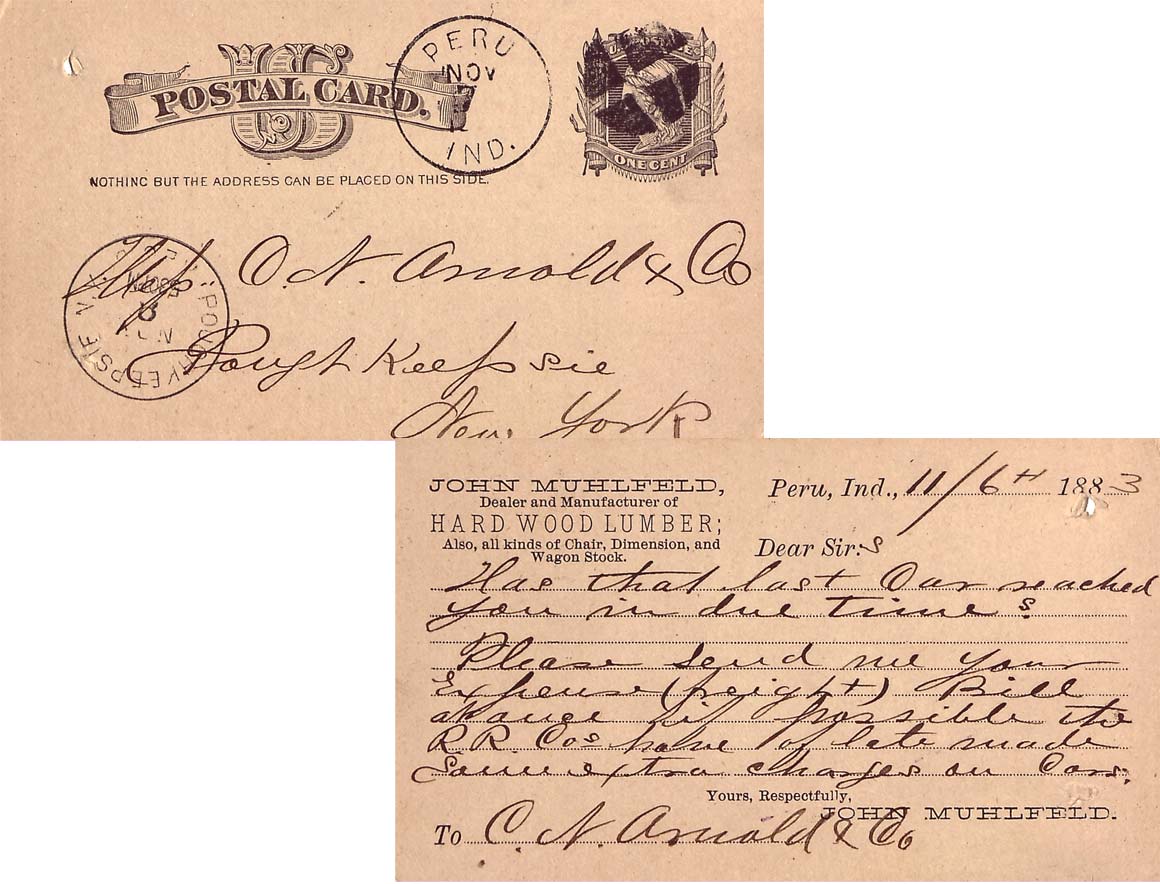 US
POSTAL CARD.
PERU
NOV
IND.
U.S. POSTAGE
ONE CENT
NOTHING BUT THE ADDRESS CAN BE PLACED ON THIS SIDE.
O. N. Arnold & Co
Pough Keepsie
New York
POUGHKEEPSIE
JOHN MUHLFELD,
Dealer and Manufacturer of
HARD WOOD LUMBER;
Also, all kinds of Chair, Dimension, and
Wagon Stock.
Peru, Ind., 11/6th 1883
Dear Sir:s
Has that last Car reached
you in due time?
Please send me your
Expense (freight) Bill
if possible the
R.R. Cos have of late made
Some extra charges on Cars.
Yours, Respectfully,
JOHN MUHLFELD.
To C. N. Arnold & Co